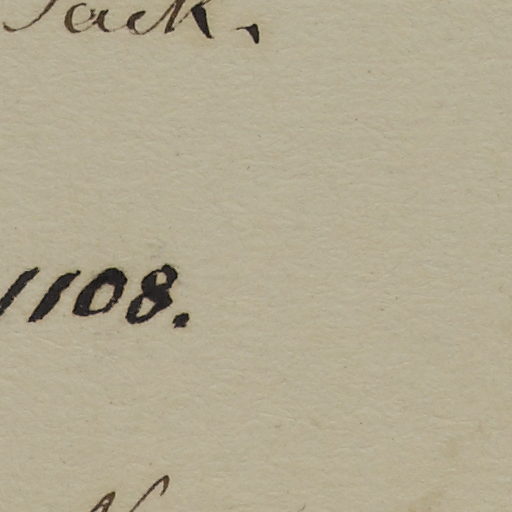 Jack.
1108.